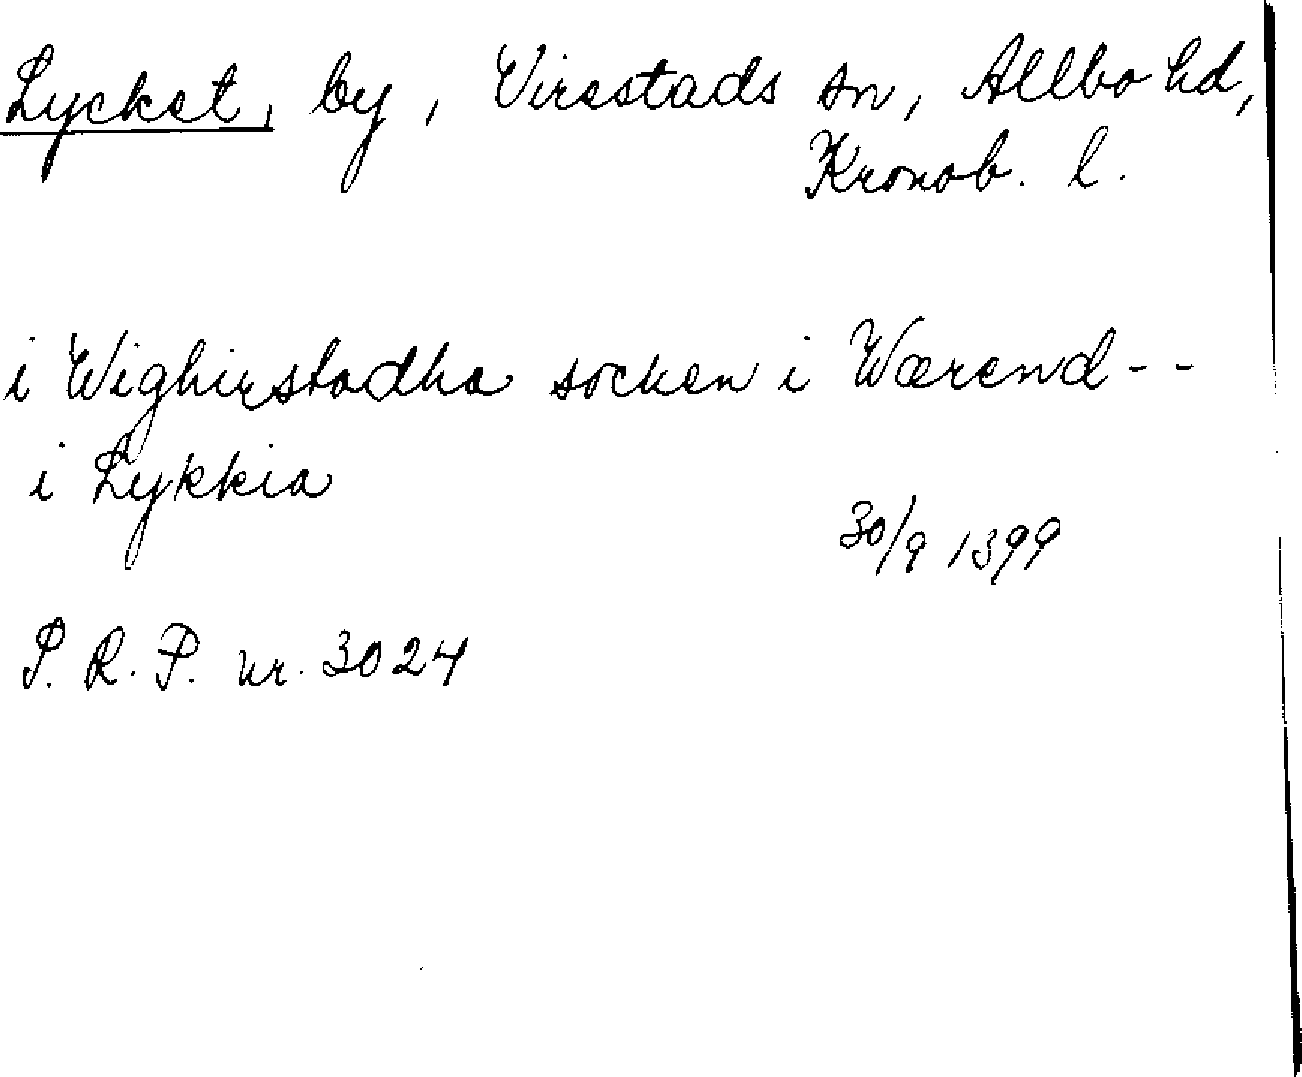 Lycket, by, Virestads sn, Allbo hd,
Kronob. l.
i Wighirstadha socken i Wærend - -
i Lykkia
30/9 1399
P. R. P. nr. 3024